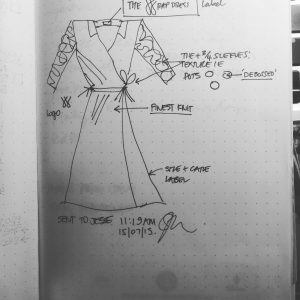 THE WRAP DRESS
Label
THE + 3/4 SLEEVES'
TEXTURE IE
DOTS
'DEBOSSED'
LOGO
FINEST KNIT
SIZE + CARE
LABEL
SENT TO JESSE 11:19AM
15/07/15.